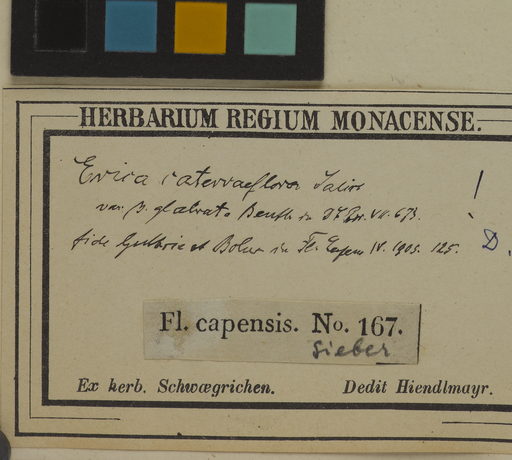 HERBARIUM REGIUM MONACENSE.
Erica catervaeflora Salisb !
var. β. glabrata Benth. in DC Pr. VII. 673.
fide Guthrie et Bolus in Fl. Capen IV. 1905. 125. D.
Fl. capensis. No. 167.
Sieber
Ex herb. Schwægrichen. Dedit Hiendlmayr.